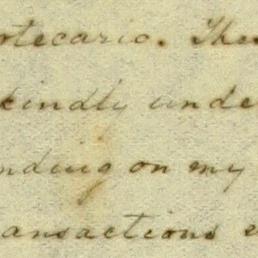 otecario. Thes
kindly unde
nding on my
ansactions e